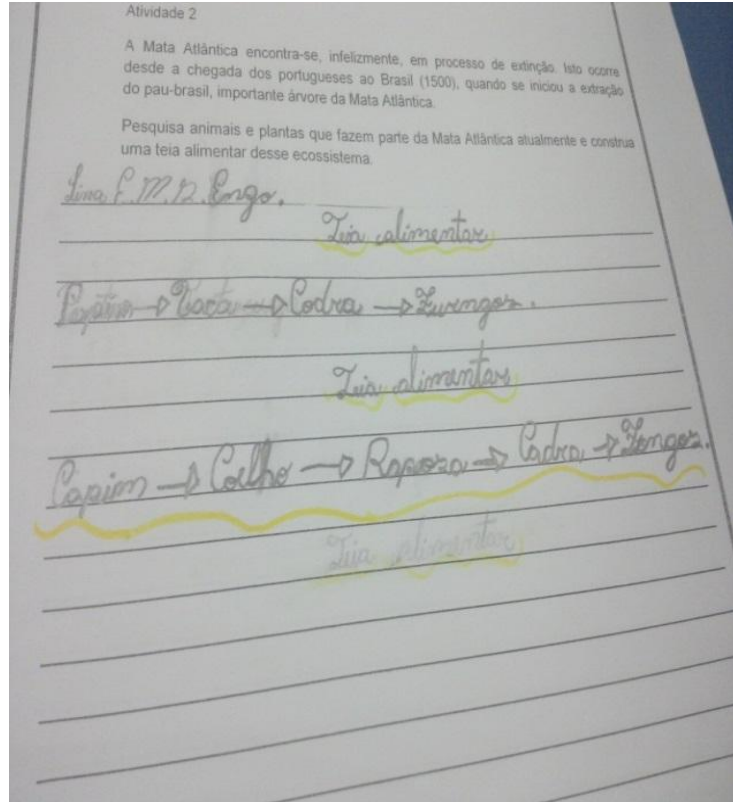 Atividade 2
A Mata Atlântica encontra-se, infelizmente, em processo de extinção. Isto ocorre
desde a chegada dos portugueses ao Brasil (1500), quando se iniciou a extração
do pau-brasil, importante árvore da Mata Atlântica.
Pesquisa animais e plantas que fazem parte da Mata Atlântica atualmente e construa
uma teia alimentar desse ecossistema.
F. M. D.
Teia alimentar
→ → Codra →
Teia alimentar
Capim → Coelho → Rapoza → Codra → Fongoz.
Teia alimentar